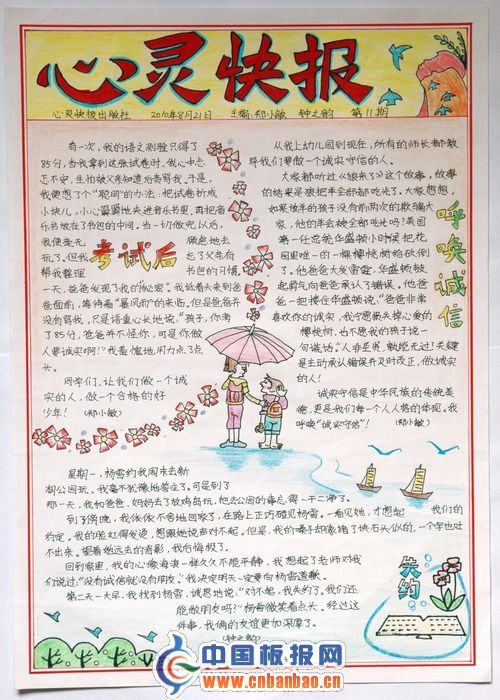 心灵快报
心灵快报出版社 2010年8月21日 主编:郑小敏 钟之韵 第11期
有一次,我的语文测验只得了
85分,当我拿到这张试卷时,我心中忐
忑不安,生怕被父亲知道后责骂我。于是,
我便想了个“聪明”的办法:把试卷折成
小块儿,小心翼翼地夹进音乐书里,再把音
乐书放在了书包的中间。当一切做完以后,
我便毫无
顾忌地去
玩了。但我
忘了父亲有
帮我整理
书包的习惯,
考试后
一天,爸爸发现了我的“秘密”。我低着头来到爸
爸面前,等待着“暴风雨”的来临。但是爸爸并
没有骂我,只是语重心长地说:“孩子,你考
了85分,爸爸并不怪你,可是你做
人要诚实啊!”我羞愧地用力点了点
头。
同学们,让我们做一个诚
实的人,做一个合格的好
少年! (郑小敏)
从我上幼儿园到现在,所有的师长都教
导我们要做一个诚实守信的人。
大家都听过《狼来了》这个故事,故事
的结果是狼把羊全部都吃光了。大家想想,
如果放羊的孩子没有前两次的欺骗大
家,他的羊会被全部吃光吗?美国
第一任总统华盛顿小时候把花
园里唯一的一棵樱桃树给砍倒
了。他爸爸大发雷霆,华盛顿鼓
起勇气向爸爸承认了错误。他爸
爸一把搂住华盛顿说:“爸爸非常
喜欢你的诚实,我宁愿损失掉心爱的
樱桃树,也不愿我的孩子说
一句谎话。”人非圣贤,孰能无过!关键
是主动承认错误并及时改正,做诚实
的人!
诚实守信是中华民族的传统美
德,更是我们每一个人人格的体现。我
呼唤“诚实守信”! (郑小敏)
呼唤诚信
星期一,杨雪约我周末去新
湖公园玩,我毫不犹豫地答应了。可是到了
那一天,我和爸爸、妈妈去了放鸡岛玩,把去公园的事忘得一干二净了。
到了傍晚,我依依不舍地回家了,在路上正巧碰见杨雪。一看见她,才想起 我们的
约定。我的脸红得发烫,想跟她说声对不起。但是,我的嗓子却像堵了块石头似的,一个字也吐
不出来。望着她远去的背影,我后悔极了。
回到家里,我的心像海浪一样久久不能平静。我想起了老师对我
们说过:“没有诚信就没有朋友。”我决定明天一定要向杨雪道歉。
第二天一大早,我找到杨雪,诚恳地说:“对不起,我失约了。我们还
能做朋友吗?”杨雪微笑着点头。经过这
件事,我俩的友谊更加深厚了。
(钟之韵)
失约
中国板报网
www.cnbanbao.cn